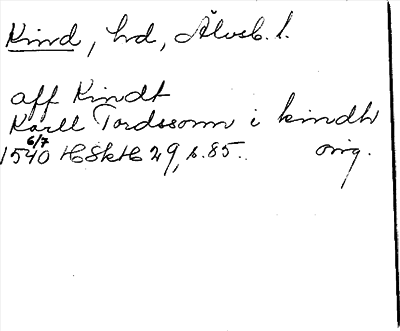 Kind, hd, Älvsb. l.
aff Kindt
Karll Tordssonn i kindh
6/7
1540 HSkH 29, s. 85. orig.